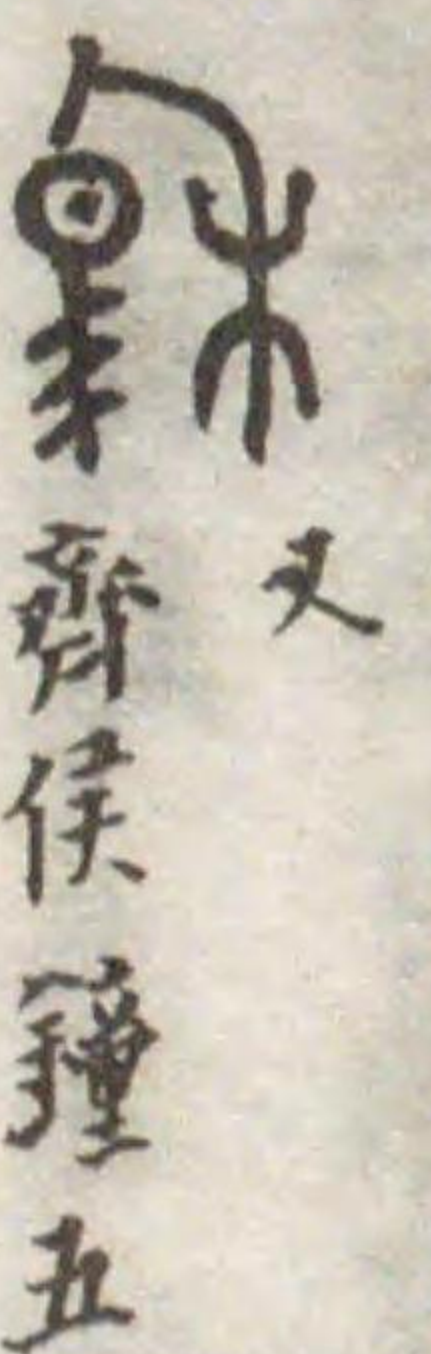 又
齊侯鐘五